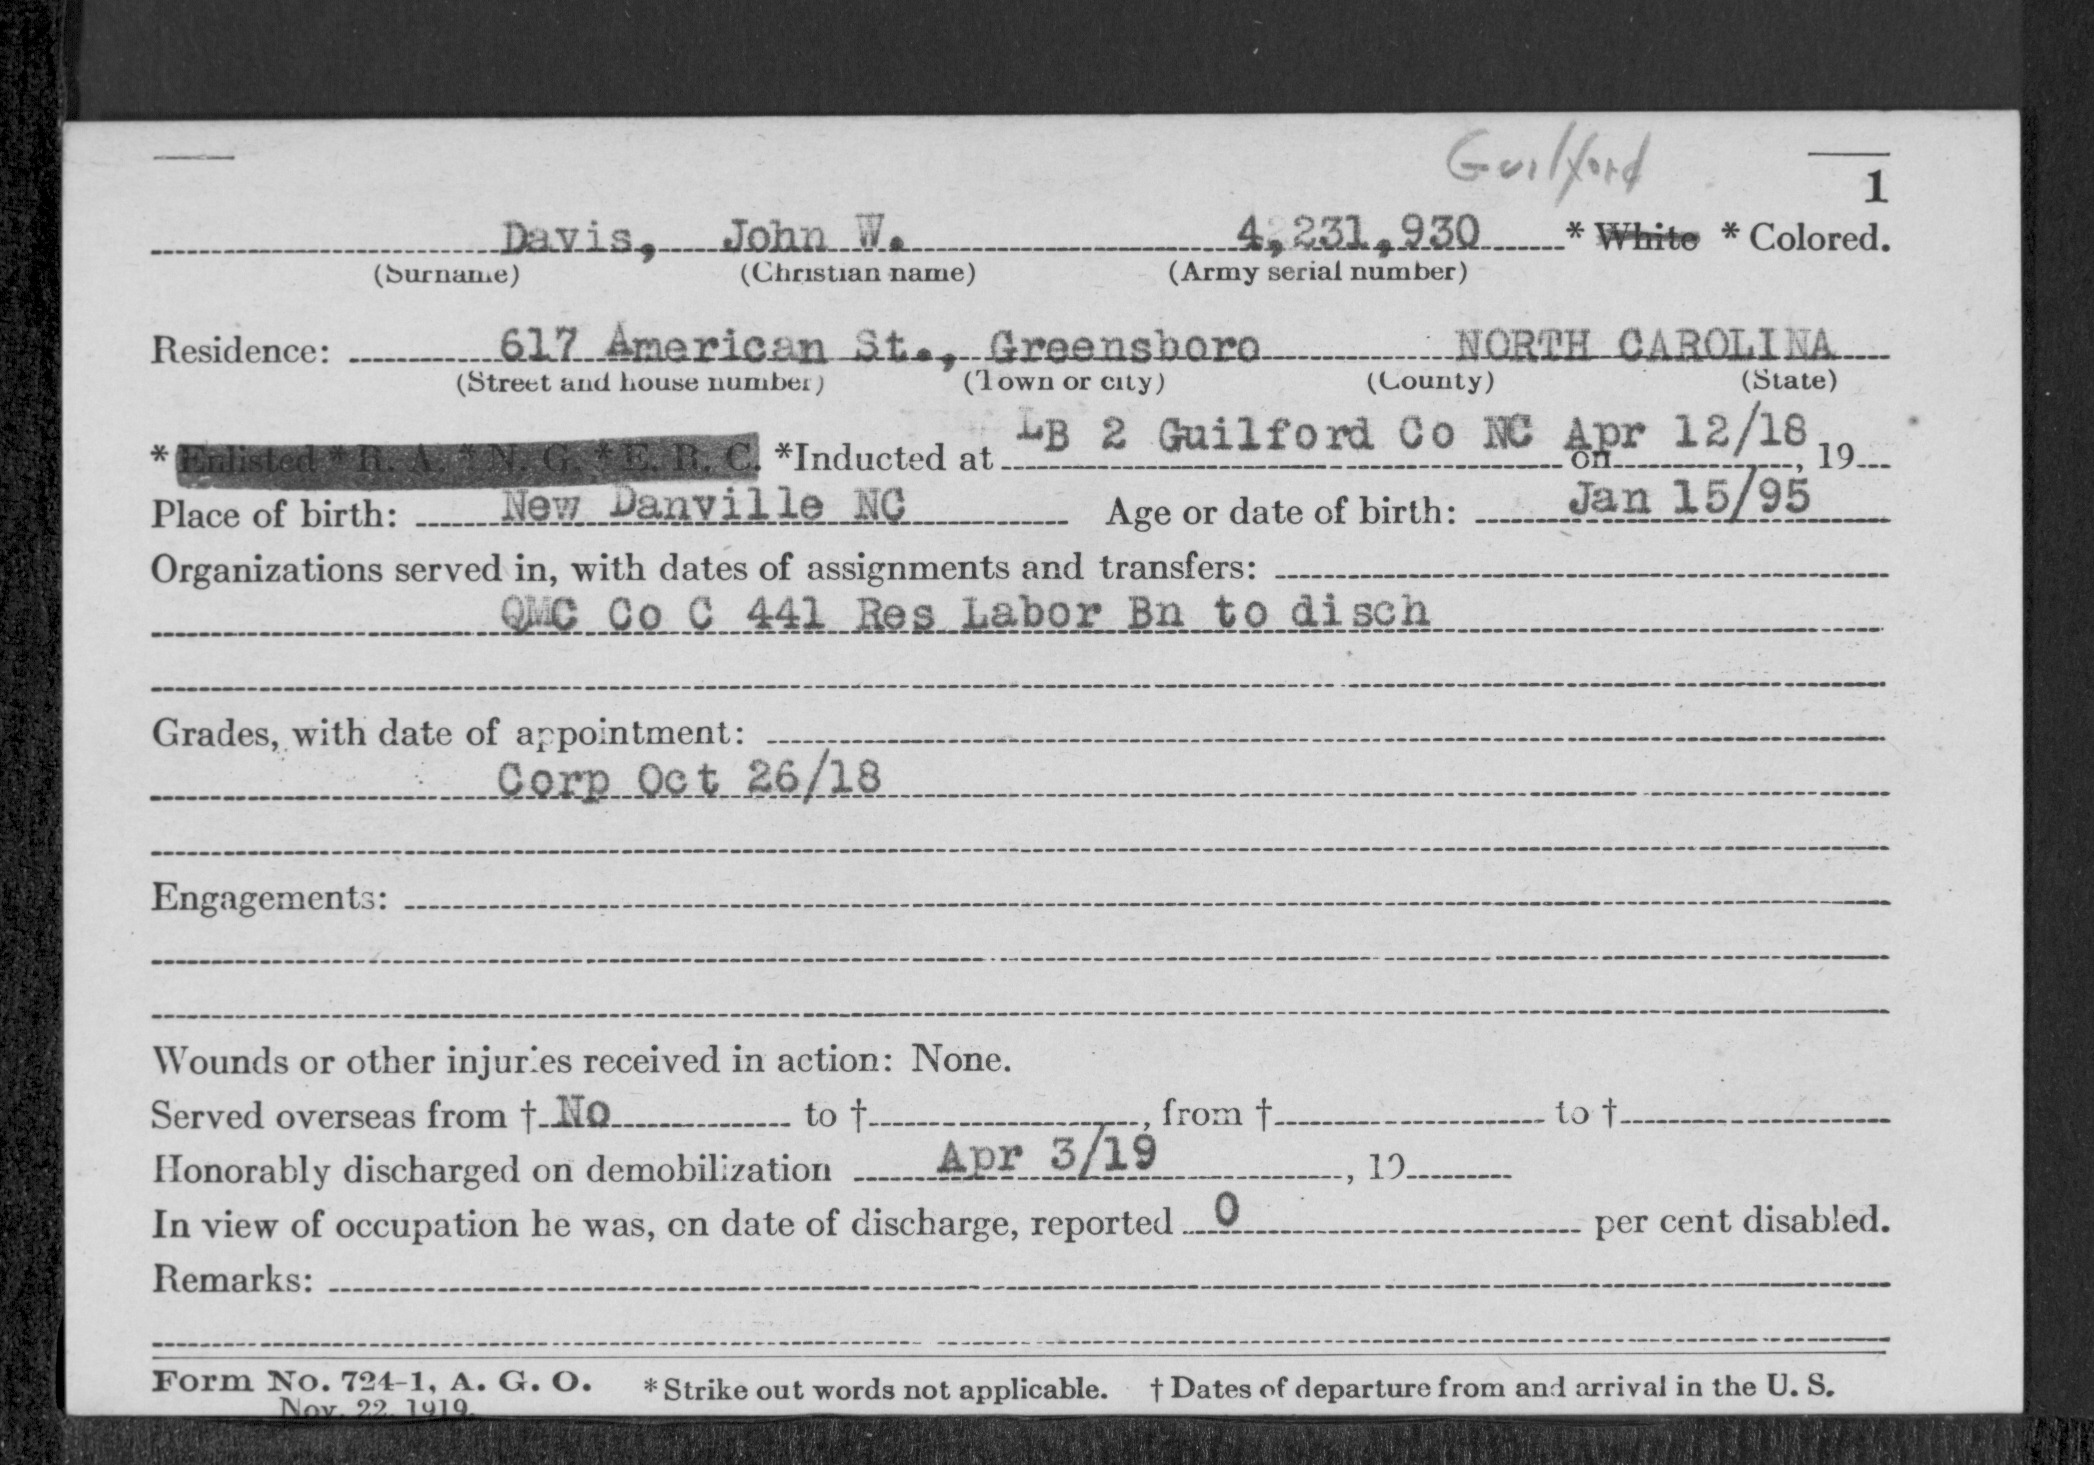 Guilford
1
Davis, John W. 4,231,930 * White * Colored.
(Surname) (Christian name) (Army serial number)
Residence: 617 American St., Greensboro NORTH CAROLINA
(Street and house number) (Town or city) (County) (State)
* Enlisted * R. A. * N. G. * E. R. C. *Inducted at LB 2 Guilford Co NC on Apr 12/18, 19
Place of birth: New Danville NC Age or date of birth: Jan 15/95
Organizations served in, with dates of assignments and transfers:
QMC Co C 441 Res Labor Bn to disch
Grades, with date of appointment:
Corp Oct 26/18
Engagements:
Wounds or other injuries received in action: None.
Served overseas from † No to †, from † to †
Honorably discharged on demobilization Apr 3/19, 19
In view of occupation he was, on date of discharge, reported 0 per cent disabled.
Remarks:
Form No. 724-1, A. G. O. * Strike out words not applicable. † Dates of departure from and arrival in the U. S.
Nov. 22, 1919.